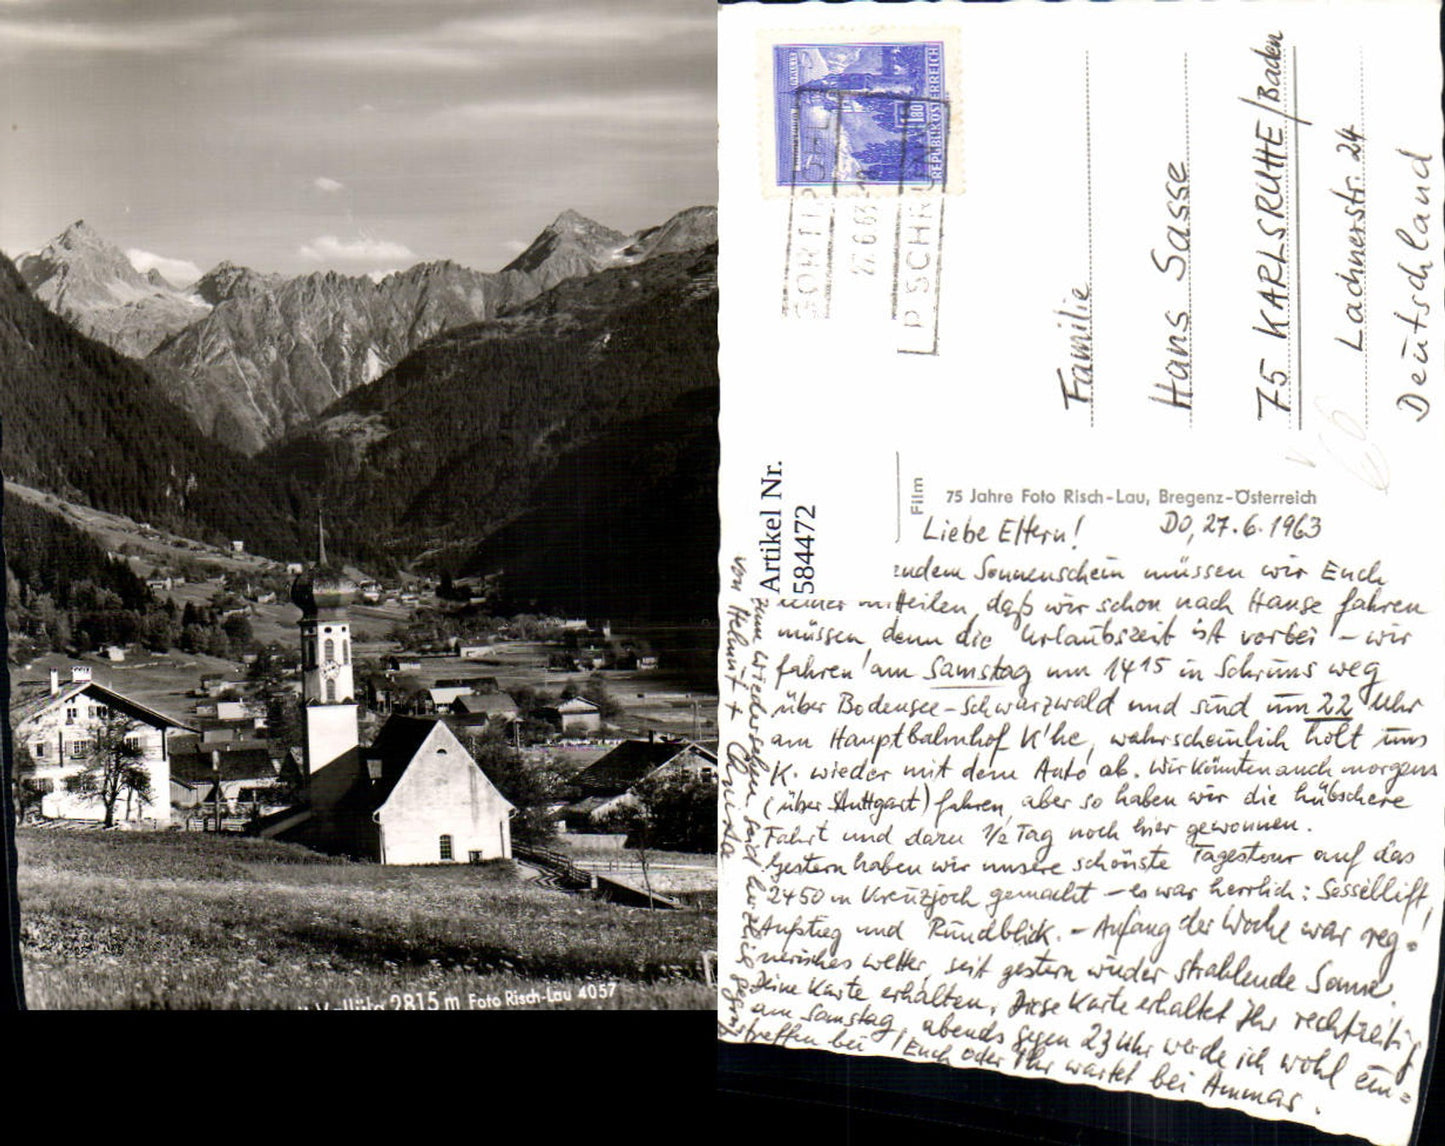 Vallüla 2815 m Foto Risch-Lau 4057
REPUBLIK ÖSTERREICH
1.80
27.6.63
SCHRUNS
Familie
Hans Sasse
75 KARLSRUHE/Baden
Lachnerstr. 24
Deutschland
Artikel Nr.
584472
Film
75 Jahre Foto Risch-Lau, Bregenz-Österreich
Liebe Eltern! Do, 27.6.1963
Sonnenschein müssen wir Euch
mitteilen, daß wir schon nach Hause fahren
müssen, denn die Urlaubszeit ist vorbei – wir
fahren am Samstag um 1415 in Schruns weg
über Bodensee-Schwarzwald und sind um 22 Uhr
am Hauptbahnhof K'he, wahrscheinlich holt uns
K. wieder mit dem Auto ab. Wir könnten auch morgens
(über Stuttgart) fahren, aber so haben wir die hübschere
Fahrt und dazu 1/2 Tag noch hier gewonnen.
Gestern haben wir unsere schönste Tagestour auf das
2450 m Kreuzjoch gemacht – es war herrlich: Sessellift,
Aufstieg und Rundblick. – Anfang der Woche war reg=
nerisches Wetter, seit gestern wieder strahlende Sonne.
Deine Karte erhalten. Diese Karte erhaltet Ihr rechtzeitig
am Samstag, abends gegen 23 Uhr werde ich wohl ein=
treffen bei Euch oder Ihr wartet bei Ammas.
Auf Wiedersehen, seid herzlich gegrüßt
von Helmut +